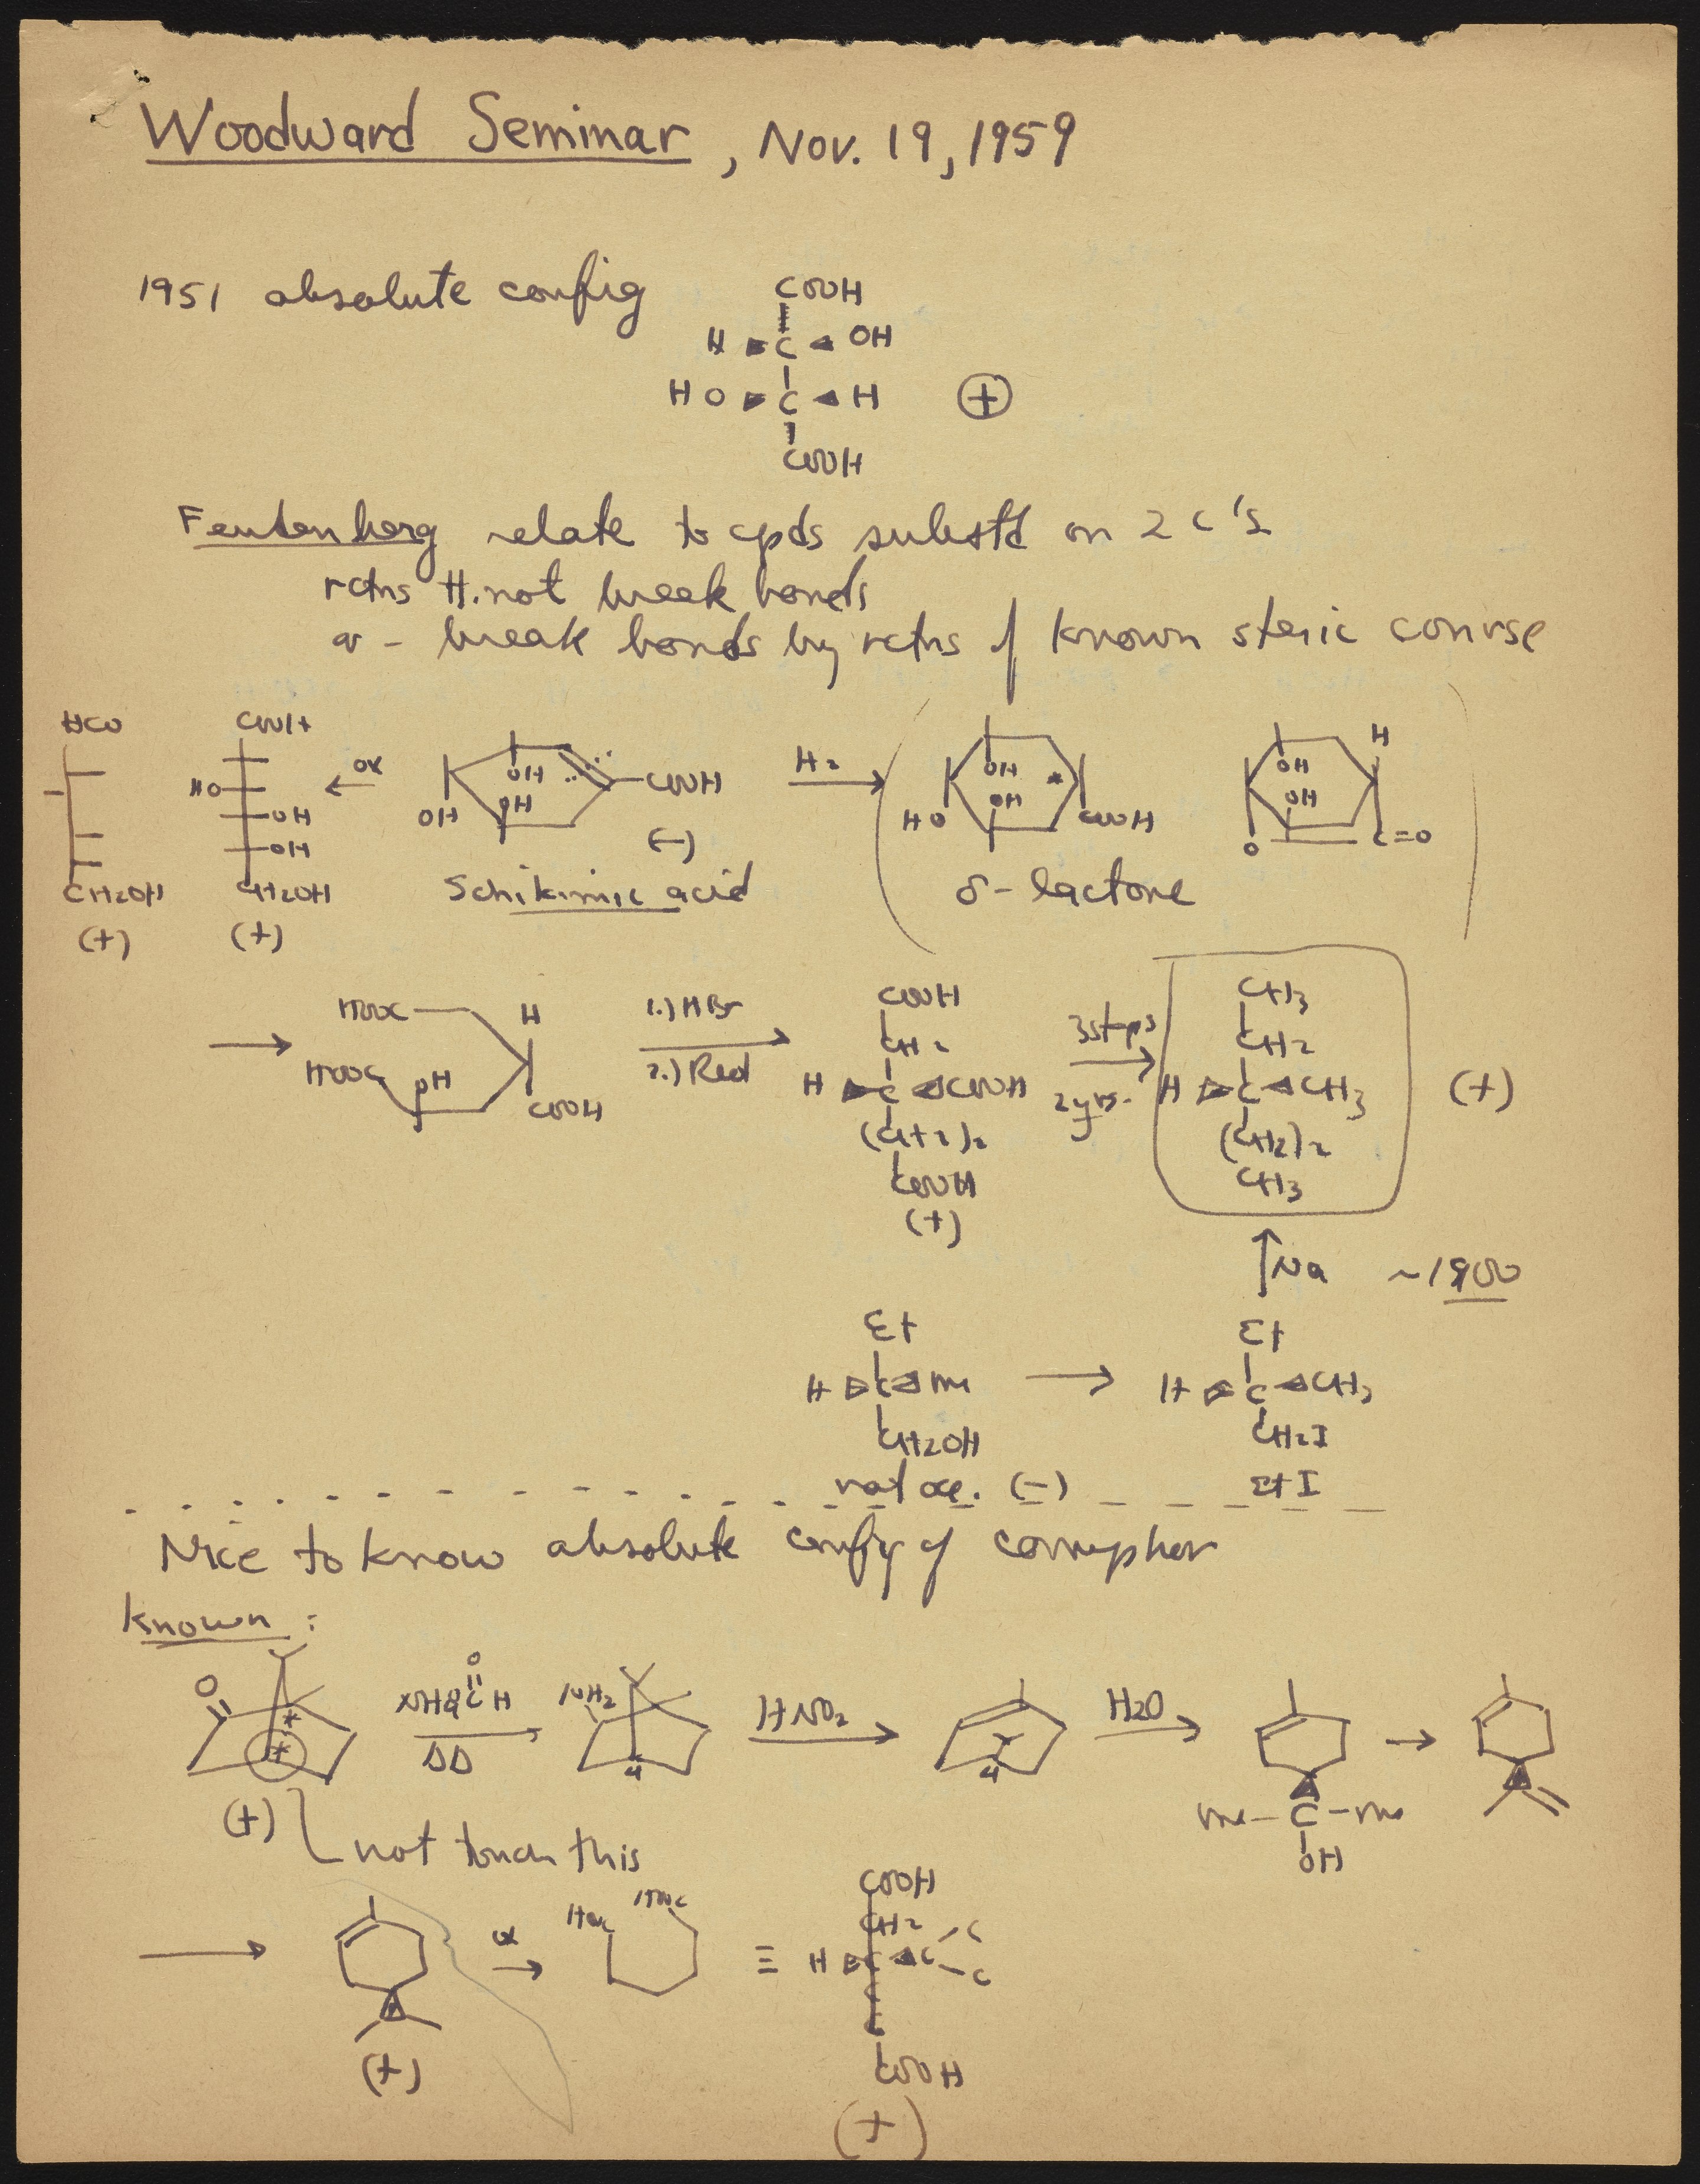 Woodward Seminar, Nov. 19, 1959
1951 absolute config
COOH
H C OH
HO C H +
COOH
Feudenberg relate to cpds substd on 2 C's
rctns tt. not break bonds
or - break bonds by rctns of known steric course
HCO
CH2OH
(+)
COOH
HO
OH
OH
CH2OH
(+)
ox
OH
OH
OH
COOH
(-)
Schikimic acid
H2
OH
OH
HO
*
COOH
H
OH
OH
O
C=O
δ-lactone
HOOC H
HOOC OH
COOH
1.) HBr
2.) Red
COOH
CH2
H C COOH
(CH2)2
COOH
(+)
3 steps
2 yrs.
CH3
CH2
H C CH3
(CH2)2
CH3
(+)
Na ~1900
Et
H C Me
CH2OH
nat occ. (-)
Et
H C CH3
CH2I
EtI
Nice to know absolute config of camphor
Known:
O
*
*
(+)
not touch this
O
NH2CH
ΔΔ
NH2
H
HNO2
H
H2O
Me-C-Me
OH
(+)
ox
HOOC
HOOC
≡
COOH
CH2
H C C C
C
COOH
(+)